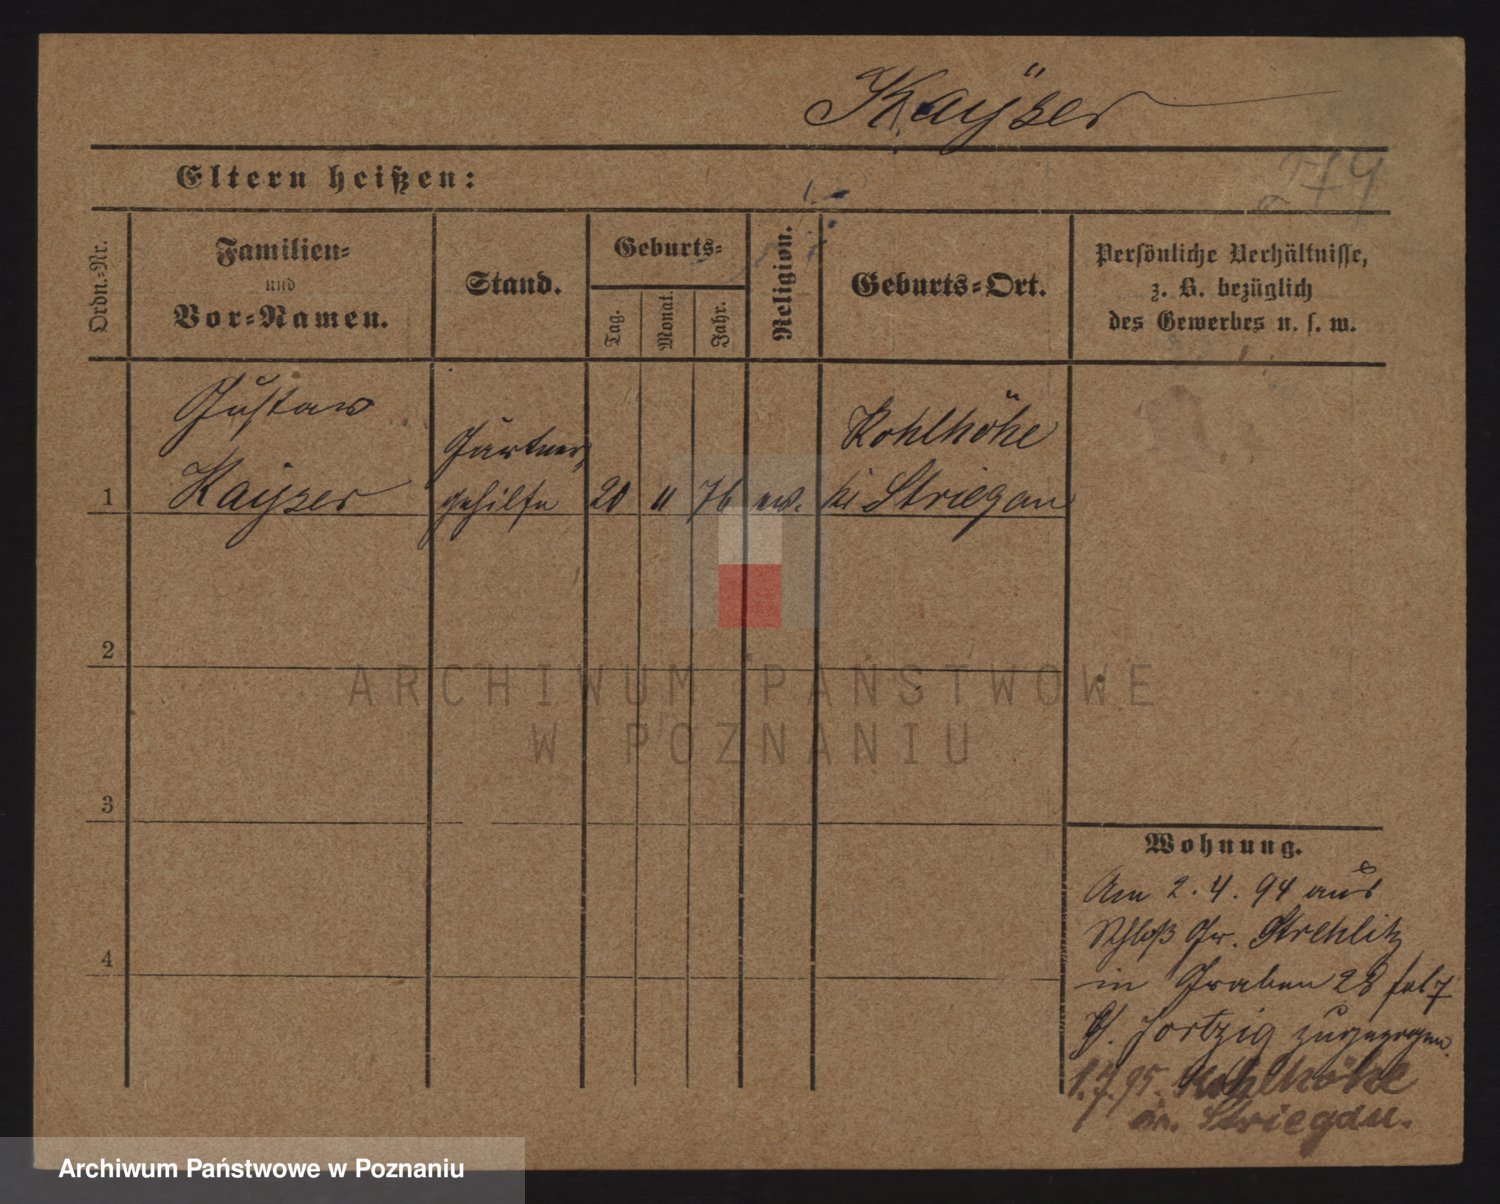 Kayser
Eltern heißen:
Ordn.-Nr.
Familien-
und
Vor-Namen.
Stand.
Geburts-
Tag.
Monat.
Jahr.
Religion.
Geburts-Ort.
Persönliche Verhältnisse,
z. B. bezüglich
des Gewerbes u. s. w.
Gustav
Kayser
Gärtner,
gehilfe
Kohlhöhe
1
20
76
ev.
bei Striegau
2
3
4
ARCHIWUM PAŃSTWOWE
W POZNANIU
Wohnung.
Am 2. 4. 94 aus
Schloß Gr. Strehlitz
in Graben 28
zugezogen.
1.7.95. Kohlhöhe
Striegau.
Archiwum Państwowe w Poznaniu